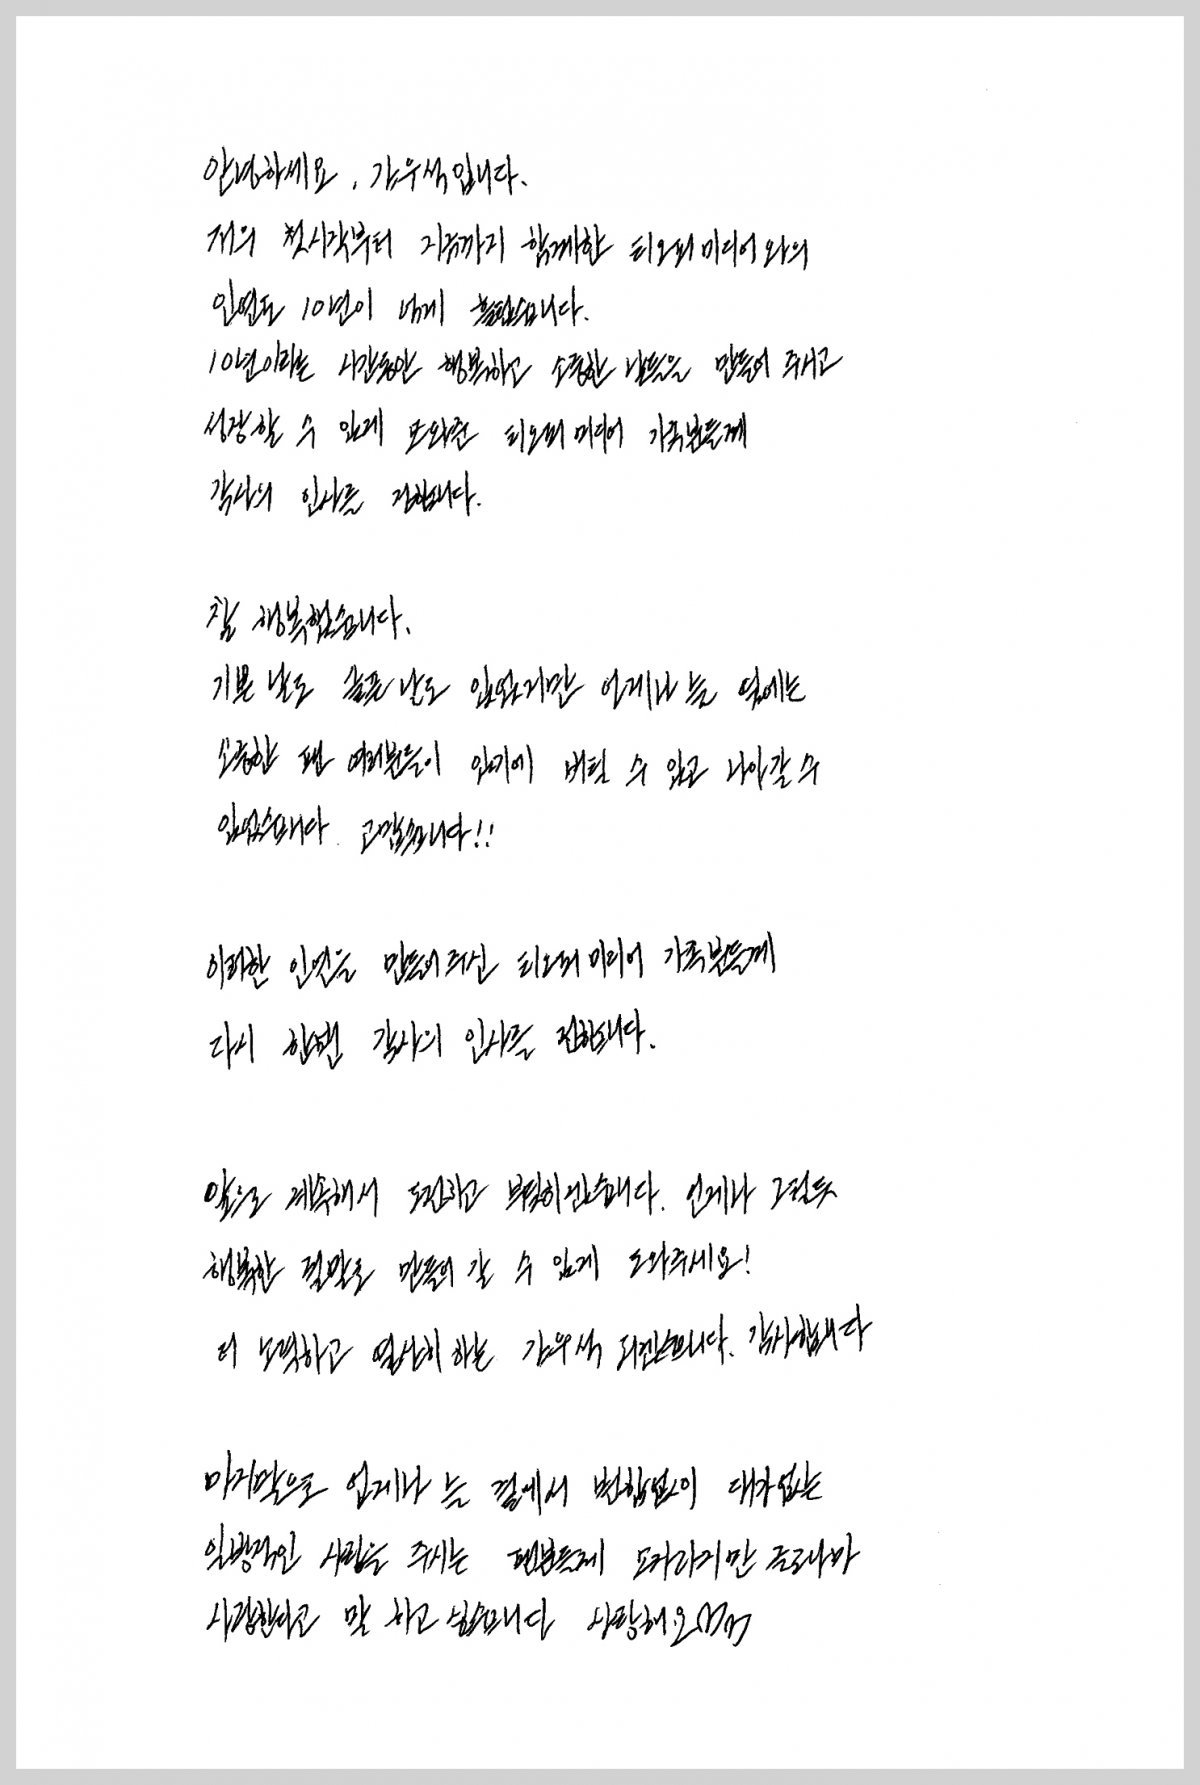 안녕하세요, 김우석입니다.
저의 첫시작부터 지금까지 함께한 티오피미디어와의
인연도 10년이 넘게 흘렀습니다.
10년이라는 시간동안 행복하고 소중한 날들을 만들어 주시고
성장할 수 있게 도와준 티오피미디어 가족분들께
감사의 인사를 전합니다.
참 행복했습니다.
기쁜 날도 슬픈 날도 있었지만 언제나 늘 옆에는
소중한 팬 여러분들이 있기에 버틸 수 있고 나아갈 수
있었습니다. 고맙습니다!!
이러한 인연을 만들어주신 티오피미디어 가족분들께
다시 한번 감사의 인사를 전합니다.
앞으로 계속해서 도전하고 부딪히겠습니다. 언제나 그렇듯
행복한 결말로 만들어 갈 수 있게 도와주세요!
더 노력하고 열심히 하는 김우석 되겠습니다. 감사합니다
마지막으로 언제나 늘 곁에서 변함없이 대가없는
일방적인 사랑을 주시는 팬분들께 모자라지만 글로나마
사랑한다고 말 하고 싶습니다 사랑해요